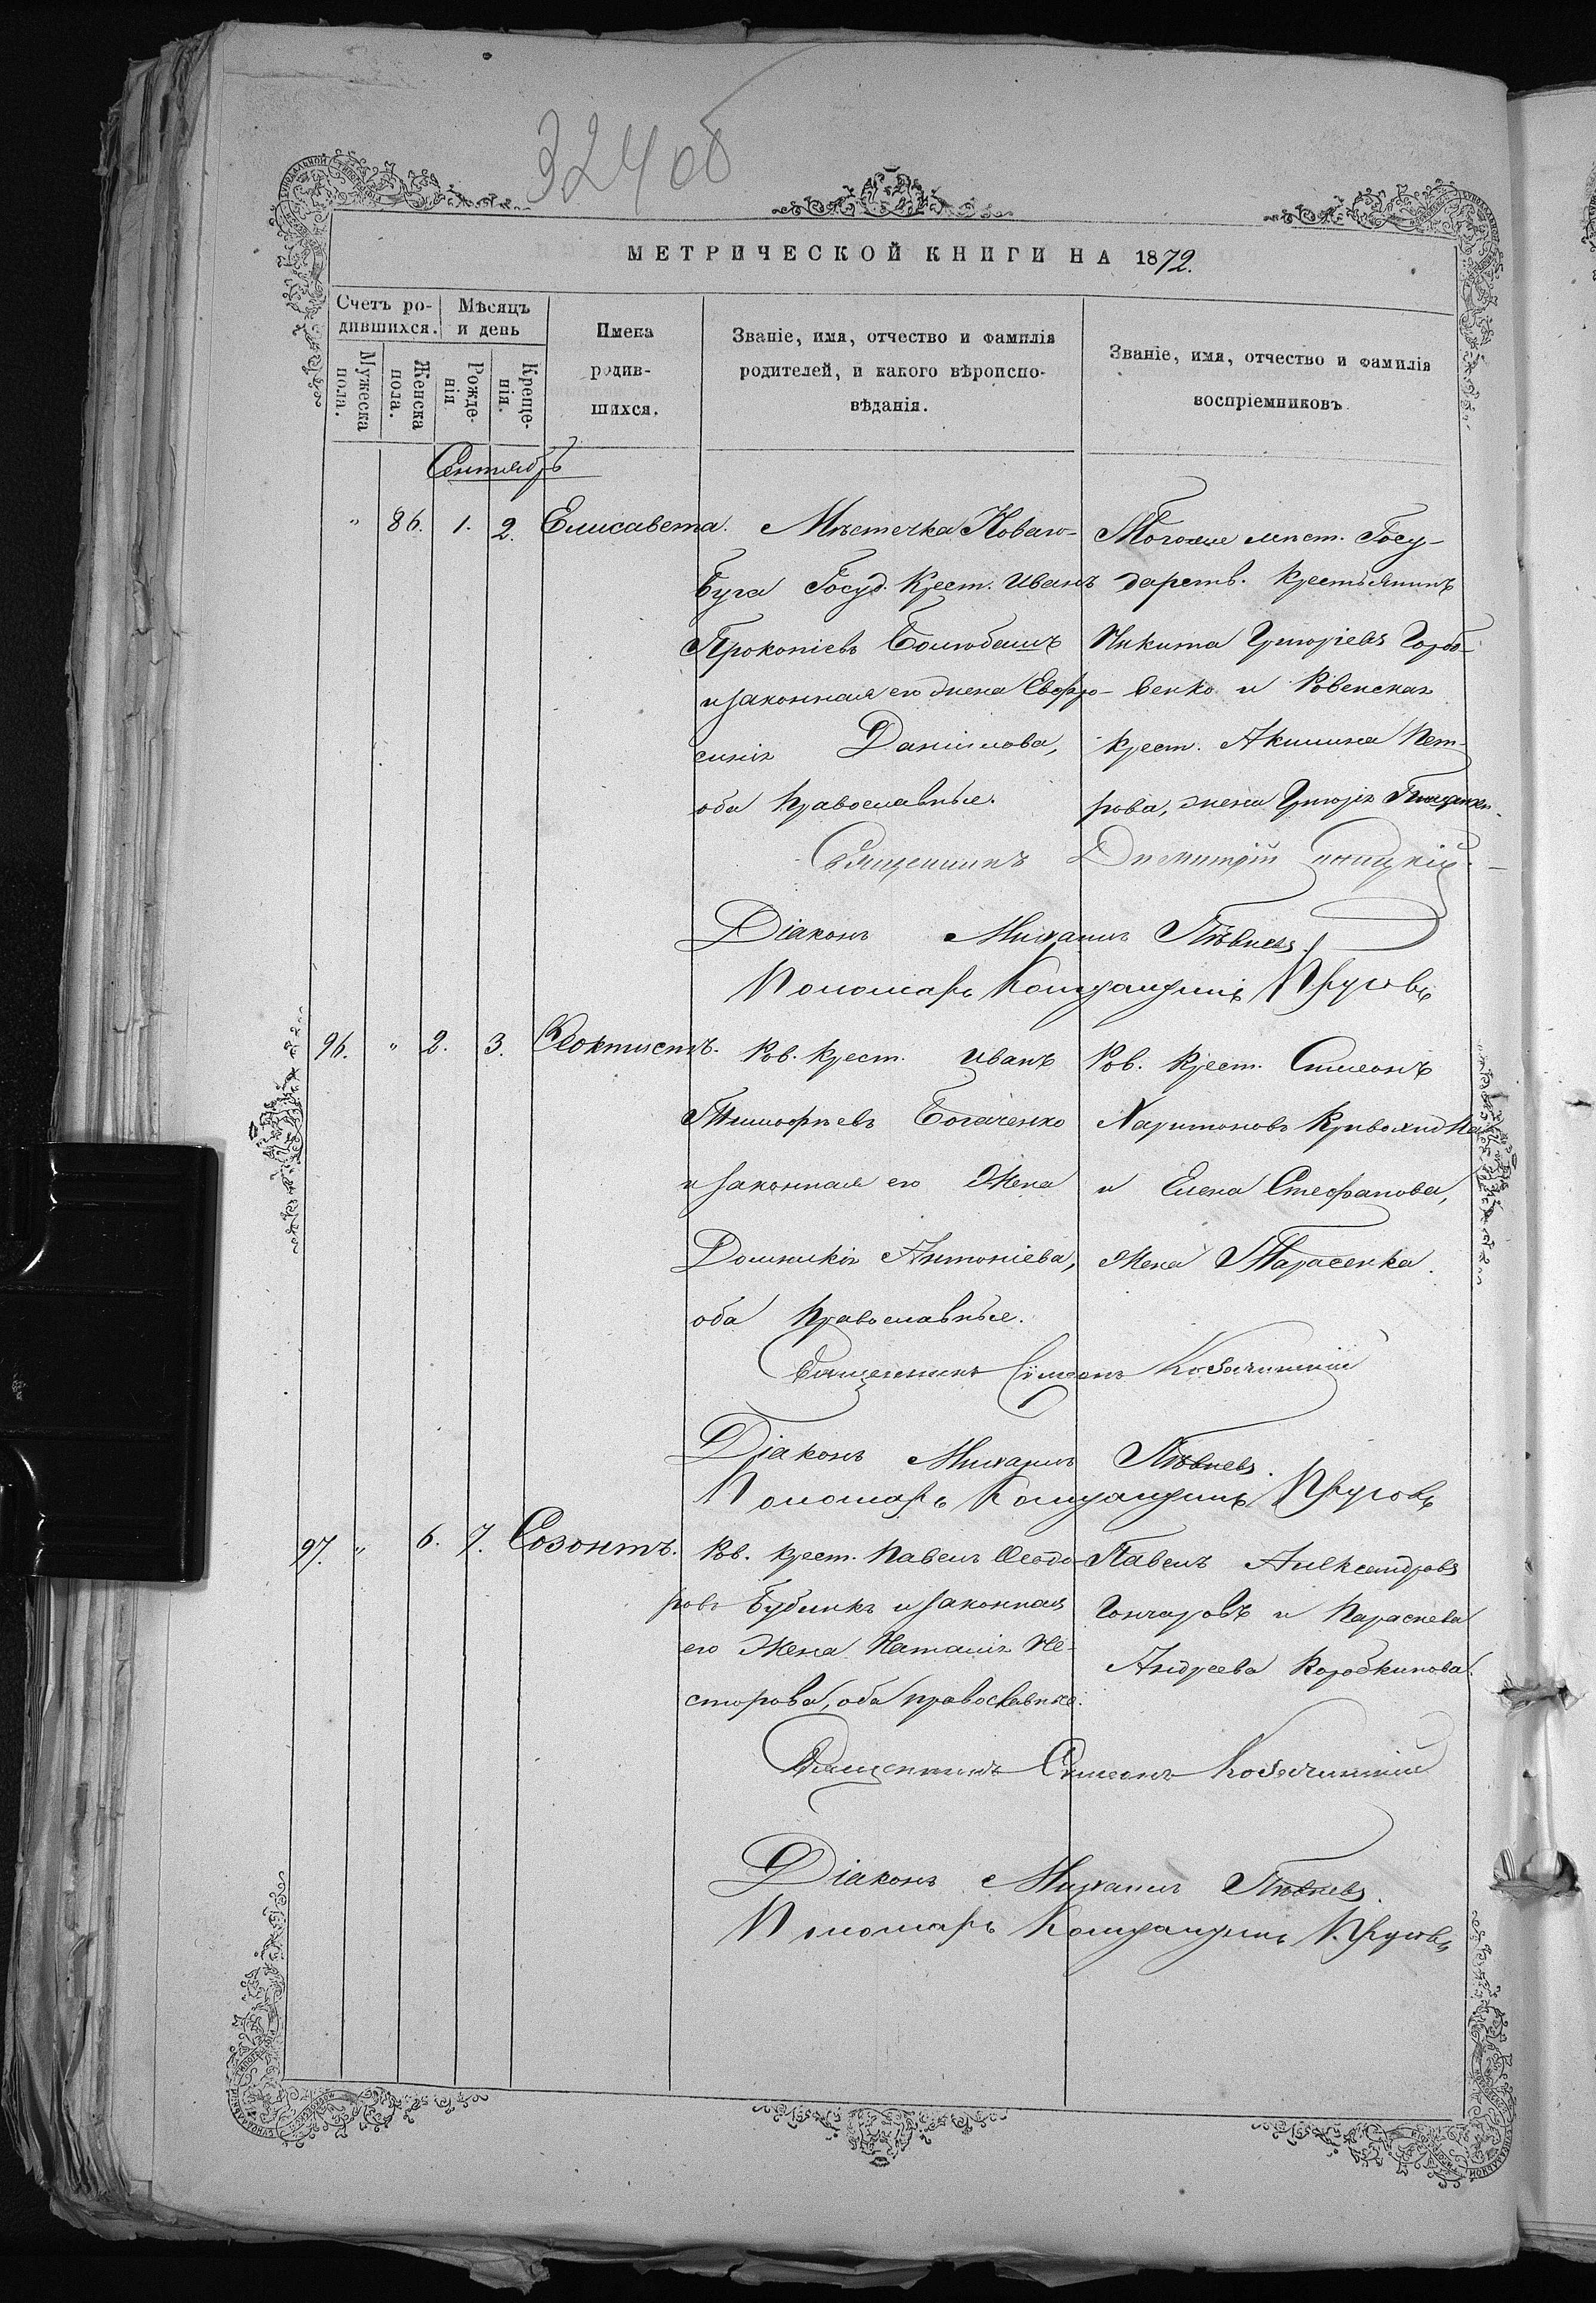 324 об
МЕТРИЧЕСКОЙ КНИГИ НА 1872.
Счетъ ро-
дившихся.
Мѣсяцъ
и день
Мужеска
пола.
Женска
пола.
Рожде-
нія
Креще-
нія.
Имена
родив-
шихся.
Званіе, имя, отчество и фамилія
родителей, и какого вѣроиспо-
вѣданія.
Званіе, имя, отчество и фамилія
воспріемниковъ
Сентябрь
" 86. 1. 2. Елисавета.
Мѣстечка Новаго-
Буга Госуд. Крест. Иванъ
Прокопіевъ Болюбашъ
и законная его жена Евфро-
синія Даніилова,
оба Православные.
Тогоже мѣст. Госу-
дарств. Крестьянинъ
Никита Григоріевъ Горбо-
венко и Ровенская
крест. Акилина Пет-
рова, жена Григорія
Священникъ Димитрій
Діаконъ Михаилъ Пѣвневъ.
Пономарь
96. " 2. 3. Ѳеоктистъ.
Ров. Крест. Иванъ
Тимофѣевъ Богаченко
и законная его Жена
Домникія Антоніева,
оба Православные.
Ров. Крест. Симеонъ
Харитоновъ Кривохидка
и Елена Стефанова,
Жена Тарасенка.
Священникъ Симеонъ Козачинскій
Діаконъ Михаилъ Пѣвневъ.
Пономарь
97. " 6. 7. Созонтъ.
Ров. крест. Павелъ Ѳеодо-
ровъ Бубликъ и законная
его Жена Наталія Не-
сторова, оба православные.
Павелъ Александровъ
Гончаровъ и Параскева
Андреева Коробкинова.
Священникъ Симеонъ Козачинскій
Діаконъ Михаилъ Пѣвневъ.
Пономарь